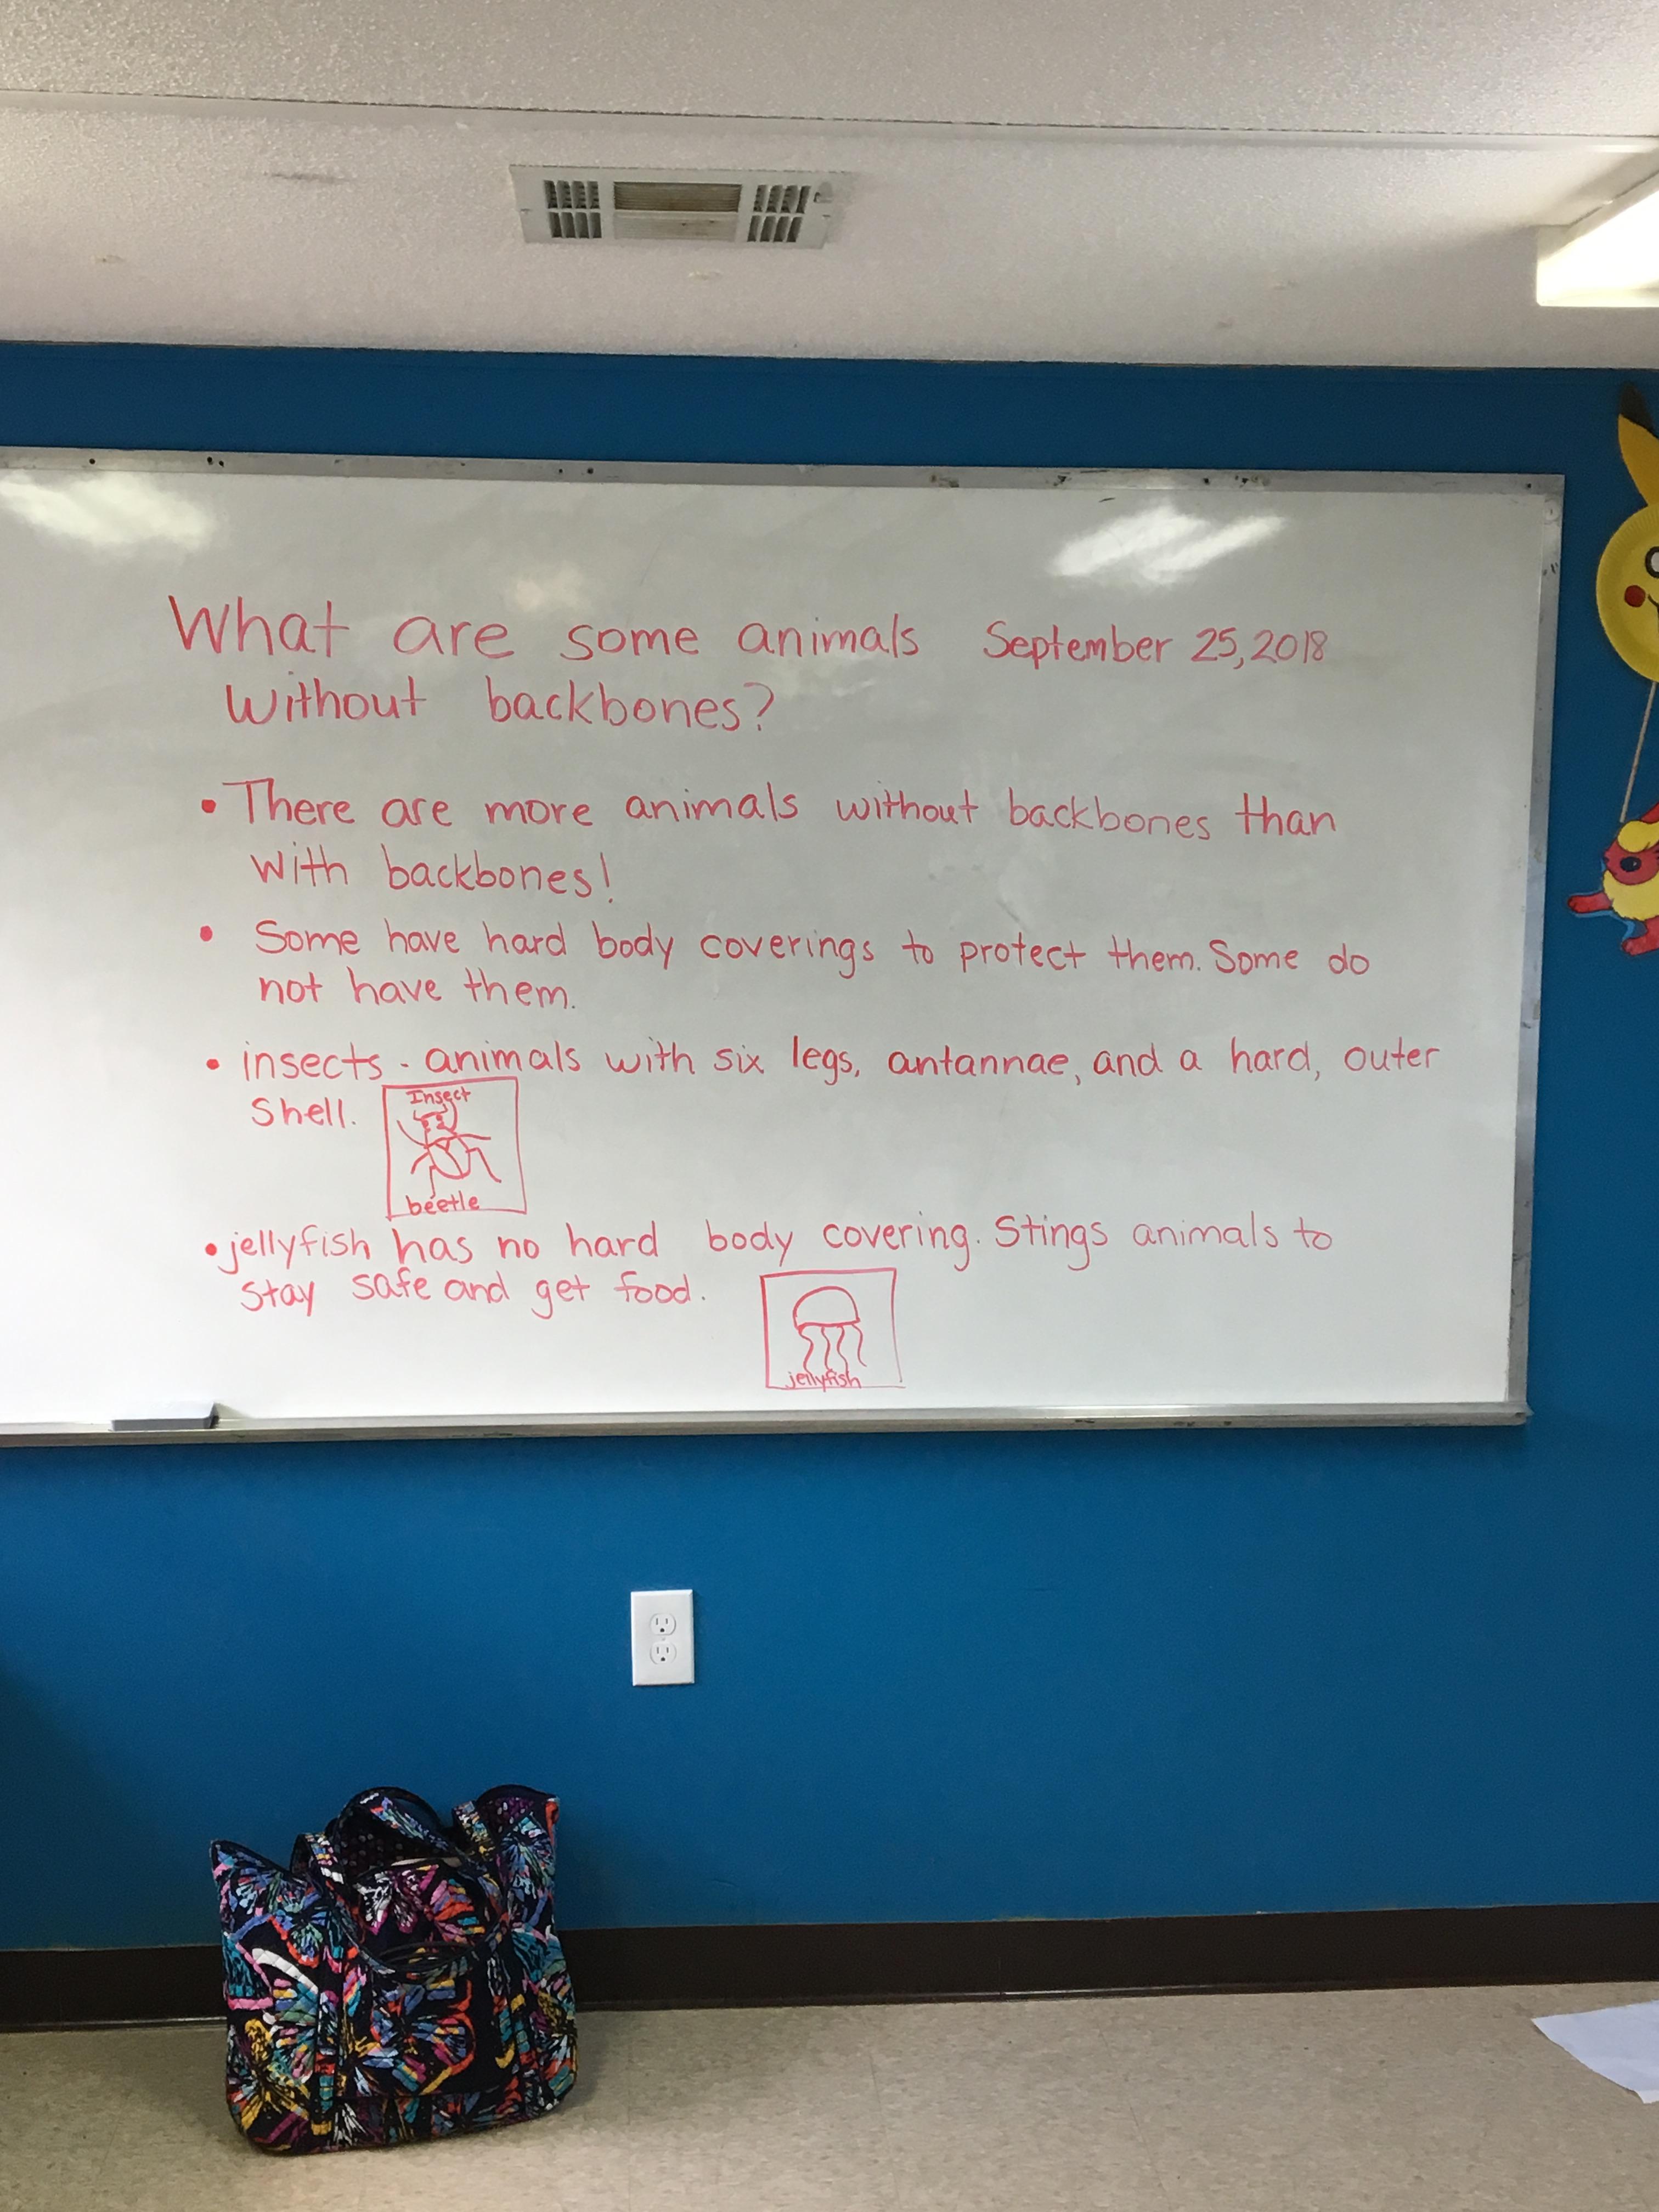 What are some animals September 25, 2018
without backbones?
• There are more animals without backbones than
with backbones!
• Some have hard body coverings to protect them. Some do
not have them.
• insects - animals with six legs, antannae, and a hard, outer
shell.
Insect
beetle
• jellyfish has no hard body covering. Stings animals to
stay safe and get food.
jellyfish